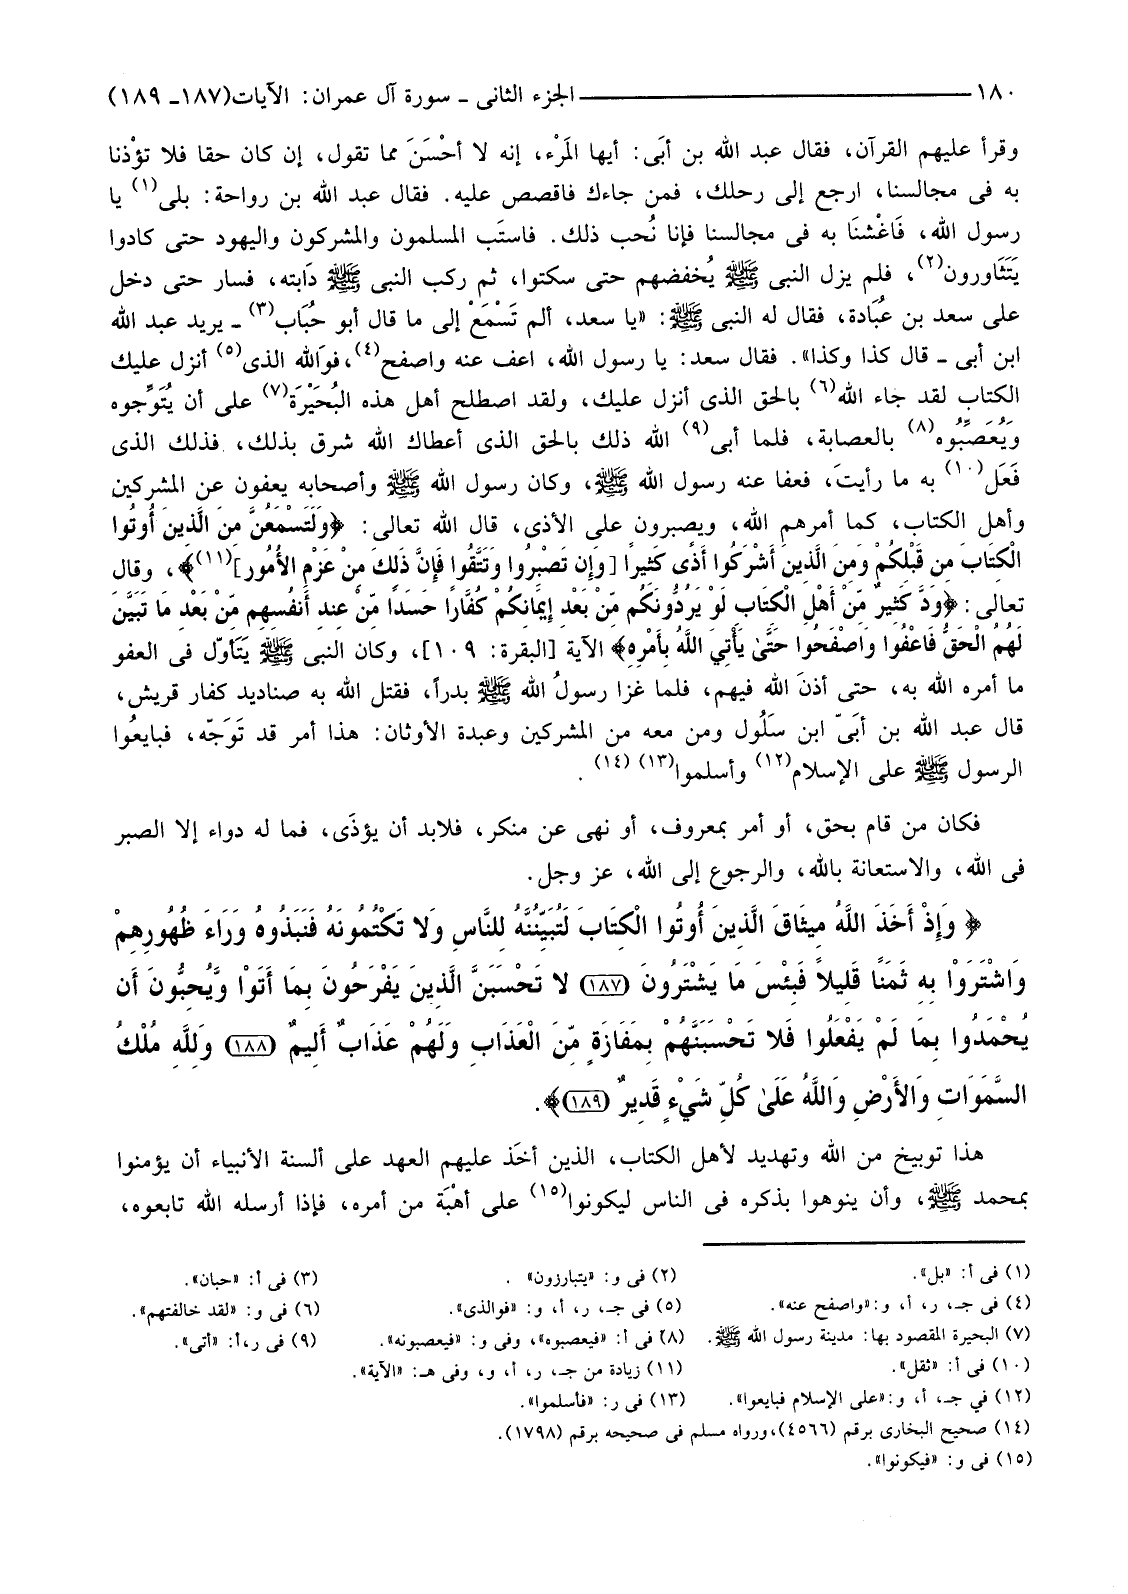 ١٨٠ ــــــــــــ الجزء الثانى ـ سورة آل عمران: الآيات(١٨٧ـ ١٨٩)
وقرأ عليهم القرآن، فقال عبد الله بن أبَى: أيها المَرْء، إنه لا أحْسَنَ مما تقول، إن كان حقا فلا تؤْذنا
به فى مجالسنا، ارجع إلى رحلك، فمن جاءك فاقصص عليه. فقال عبد الله بن رواحة: بلى(١) يا
رسول الله، فَاغْشنَا به فى مجالسنا فإنا نُحب ذلك. فاستَب المسلمون والمشركون واليهود حتى كادوا
يَتَثَاورون(٢)، فلم يزل النبى ﷺ يُخفضهم حتى سكتوا، ثم ركب النبى ﷺ دَابته، فسار حتى دخل
على سعد بن عُبَادة، فقال له النبى ﷺ: «يا سعد، ألم تَسْمَعْ إلى ما قال أبو حُبَاب(٣) ـ يريد عبد الله
ابن أبى ـ قال كذا وكذا». فقال سعد: يا رسول الله، اعف عنه واصفح(٤)،فوَالله الذى(٥) أنزل عليك
الكتاب لقد جاء الله(٦) بالحق الذى أنزل عليك، ولقد اصطلح أهل هذه البُحَيْرَة(٧) على أن يُتَوِّجوه
وَيُعَصِّبُوه(٨) بالعصابة، فلما أبى(٩) الله ذلك بالحق الذى أعطاك الله شرق بذلك، فذلك الذى
فَعَل(١٠) به ما رأيتَ، فعفا عنه رسول الله ﷺ، وكان رسول الله ﷺ وأصحابه يعفون عن المشركين
وأهل الكتاب، كما أمرهم الله، ويصبرون على الأذى، قال الله تعالى: ﴿وَلَتَسْمَعُنَّ مِنَ الَّذِينَ أُوتُوا
الْكِتَابَ مِن قَبْلِكُمْ وَمِنَ الَّذِينَ أَشْرَكُوا أَذًى كَثِيرًا [وَإِن تَصْبِرُوا وَتَتَّقُوا فَإِنَّ ذَلِكَ مِنْ عَزْمِ الأُمُورِ](١١)﴾، وقال
تعالى: ﴿وَدَّ كَثِيرٌ مِّنْ أَهْلِ الْكِتَابِ لَوْ يَرُدُّونَكُم مِّنْ بَعْدِ إِيمَانِكُمْ كُفَّارًا حَسَدًا مِّنْ عِندِ أَنفُسِهِم مِّنْ بَعْدِ مَا تَبَيَّنَ
لَهُمُ الْحَقُّ فَاعْفُوا وَاصْفَحُوا حَتَّىٰ يَأْتِيَ اللَّهُ بِأَمْرِهِ﴾ الآية [البقرة: ١٠٩]، وكان النبى ﷺ يَتَأوّل فى العفو
ما أمره الله به، حتى أذنَ الله فيهم، فلما غزا رسولُ الله ﷺ بدراً، فقتل الله به صناديد كفار قريش،
قال عبد الله بن أبَىّ ابن سَلُول ومن معه من المشركين وعبدة الأوثان: هذا أمر قد تَوَجّه، فبايعُوا
الرسول ﷺ على الإسلام(١٢) وأسلموا(١٣) (١٤).
فكان من قام بحق، أو أمر بمعروف، أو نهى عن منكر، فلابد أن يؤذَى، فما له دواء إلا الصبر
فى الله، والاستعانة بالله، والرجوع إلى الله، عز وجل.
﴿ وَإِذْ أَخَذَ اللَّهُ مِيثَاقَ الَّذِينَ أُوتُوا الْكِتَابَ لَتُبَيِّنُنَّهُ لِلنَّاسِ وَلا تَكْتُمُونَهُ فَنَبَذُوهُ وَرَاءَ ظُهُورِهِمْ
وَاشْتَرَوْا بِهِ ثَمَنًا قَلِيلاً فَبِئْسَ مَا يَشْتَرُونَ (١٨٧) لا تَحْسَبَنَّ الَّذِينَ يَفْرَحُونَ بِمَا أَتَوْا وَّيُحِبُّونَ أَن
يُحْمَدُوا بِمَا لَمْ يَفْعَلُوا فَلا تَحْسَبَنَّهُمْ بِمَفَازَةٍ مِّنَ الْعَذَابِ وَلَهُمْ عَذَابٌ أَلِيمٌ (١٨٨) وَلِلَّهِ مُلْكُ
السَّمَوَاتِ وَالأَرْضِ وَاللَّهُ عَلَىٰ كُلِّ شَيْءٍ قَدِيرٌ (١٨٩)﴾.
هذا توبيخ من الله وتهديد لأهل الكتاب، الذين أخَذ عليهم العهد على ألسنة الأنبياء أن يؤمنوا
بمحمد ﷺ، وأن ينوهوا بذكره فى الناس ليكونوا(١٥) على أهْبَة من أمره، فإذا أرسله الله تابعوه،
(١) فى أ: «بل». (٢) فى و: «يتبارزون» . (٣) فى أ: «حبان».
(٤) فى جـ، ر، أ، و:«واصفح عنه». (٥) فى جـ، ر، أ، و: «فوالذى». (٦) فى و: «لقد خالفتهم».
(٧) البحيرة المقصود بها: مدينة رسول الله ﷺ. (٨) فى أ: «فيعصبوه»، وفى و: «فيعصبونه». (٩) فى ر،أ: «أتى».
(١٠) فى أ: «ثقل». (١١) زيادة من جـ، ر، أ، و، وفى هـ: «الآية».
(١٢) في جـ، أ، و:«على الإسلام فبايعوا». (١٣) فى ر: «فأسلموا».
(١٤) صحيح البخارى برقم (٤٥٦٦)،ورواه مسلم فى صحيحه برقم (١٧٩٨).
(١٥) فى و: «فيكونوا».